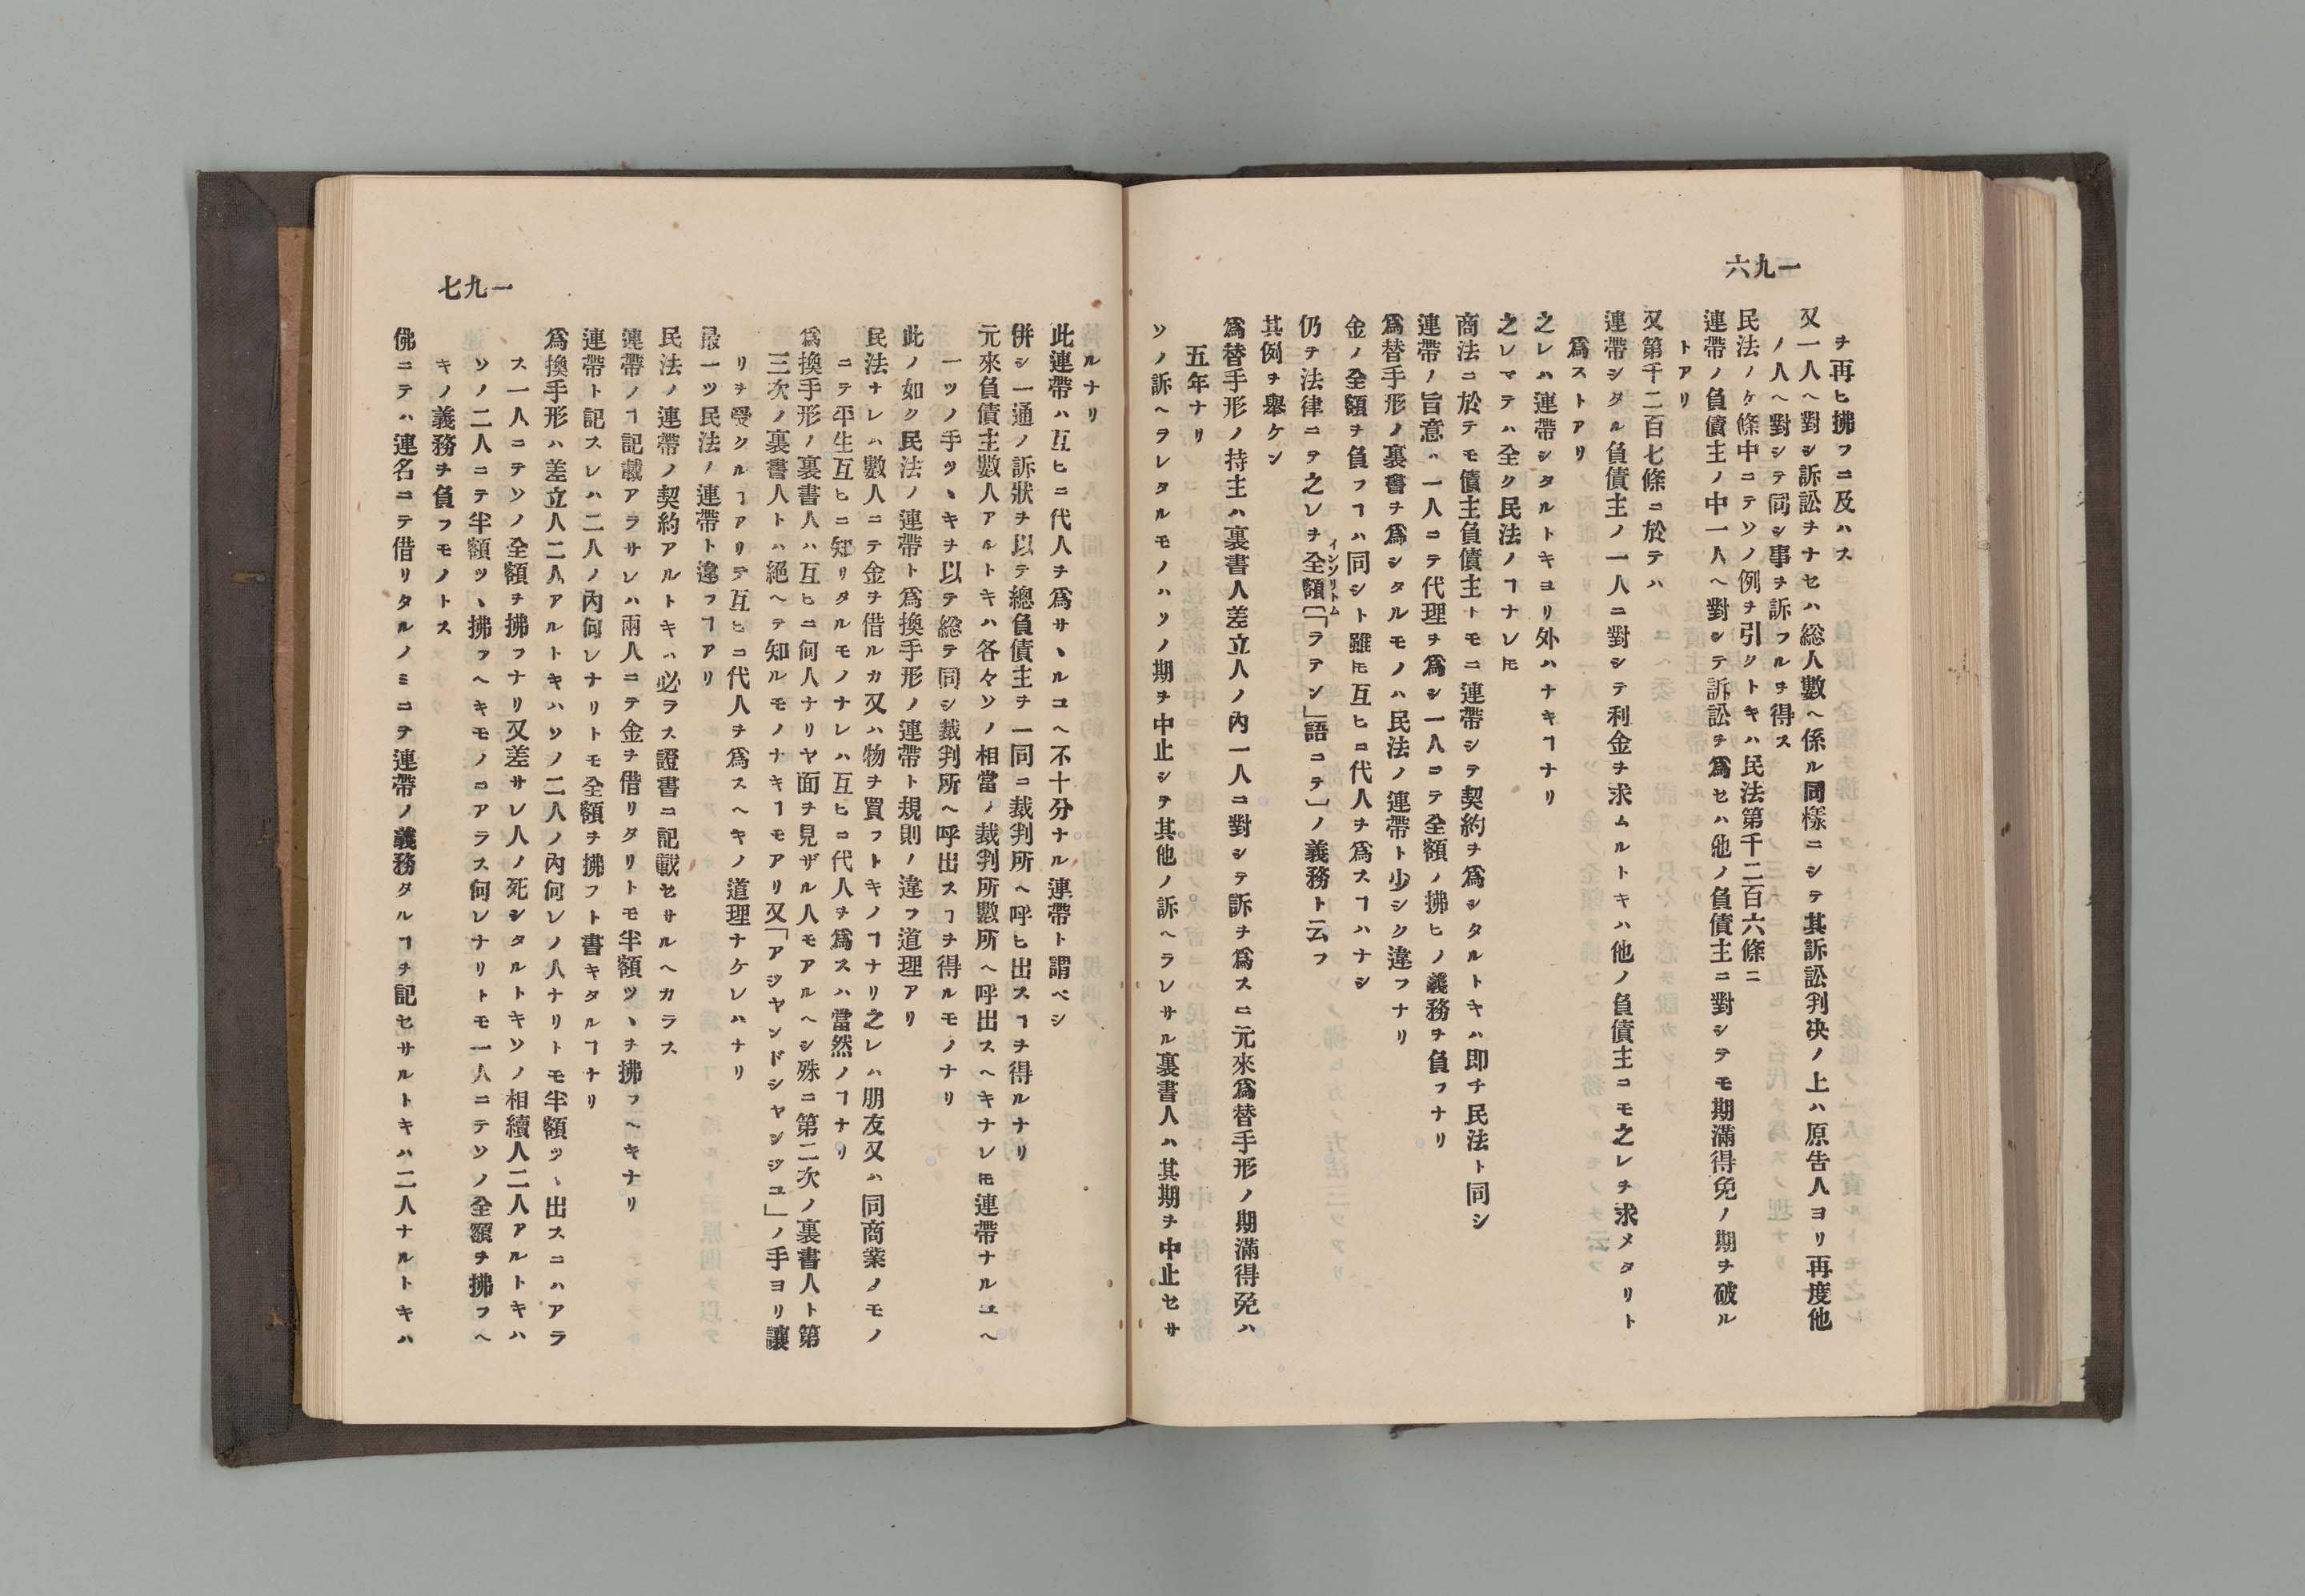 一九六
ヲ再ヒ拂フニ及ハス
又一人ヘ對シ訴訟ヲナセハ総人數ヘ係ル同樣ニシテ其訴訟判决ノ上ハ原告人ヨリ再度他
ノ人ヘ對シテ同シ事ヲ訴フルヲ得ス
民法ノケ條中ニテソノ例ヲ引クトキハ民法第千二百六條ニ
連帶ノ負債主ノ中一人ヘ對シテ訴訟ヲ爲セハ他ノ負債主ニ對シテモ期滿得免ノ期ヲ破ル
トアリ
又第千二百七條ニ於テハ
連帶シタル負債主ノ一人ニ對シテ利金ヲ求ムルトキハ他ノ負債主ニモ之レヲ求メタリト
爲ストアリ
之レハ連帶シタルトキヨリ外ハナキヿナリ
之レマテハ全ク民法ノヿナレ𪜈
商法ニ於テモ債主負債主トモニ連帶シテ契約ヲ爲シタルトキハ即チ民法ト同シ
連帶ノ旨意ハ一人ニテ代理ヲ爲シ一人ニテ全額ノ拂ヒノ義務ヲ負フナリ
爲替手形ノ裏書ヲ爲シタルモノハ民法ノ連帶ト少シク違フナリ
金ノ全額ヲ負フヿハ同シト雖𪜈互ヒニ代人ヲ爲スヿハナシ
仍テ法律ニテ之レヲ全額〔「ラテン」語ニテ〕ノ義務ト云フ
インソリトム
其例ヲ舉ケン
爲替手形ノ持主ハ裏書人差立人ノ內一人ニ對シテ訴ヲ爲スニ元來爲替手形ノ期滿得免ハ
五年ナリ
ソノ訴ヘラレタルモノハソノ期ヲ中止シテ其他ノ訴ヘラレサル裏書人ハ其期ヲ中止セサ
一九七
ルナリ
此連帶ハ互ヒニ代人ヲ爲サヽルユヘ不十分ナル連帶ト謂ベシ
併シ一通ノ訴狀ヲ以テ總負債主ヲ一同ニ裁判所ヘ呼ヒ出スヿヲ得ルナリ
元來負債主數人アルトキハ各々ソノ相當ノ裁判所數所ヘ呼出スヘキナレ𪜈連帶ナルユヘ
一ツノ手ツヽキヲ以テ総テ同シ裁判所ヘ呼出スヿヲ得ルモノナリ
此ノ如ク民法ノ連帶ト爲換手形ノ連帶ト規則ノ違フ道理アリ
民法ナレハ數人ニテ金ヲ借ルカ又ハ物ヲ買フトキノヿナリ之レハ朋友又ハ同商業ノモノ
ニテ平生互ヒニ知リタルモノナレハ互ヒニ代人ヲ爲スハ當然ノヿナリ
爲換手形ノ裏書人ハ互ヒニ何人ナリヤ面ヲ見ザル人モアルヘシ殊ニ第二次ノ裏書人ト第
三次ノ裏書人トハ絕ヘテ知ルモノナキヿモアリ又「アジヤンドシヤンジユ」ノ手ヨリ讓
リヲ受クルヿアリテ互ヒニ代人ヲ爲スヘキノ道理ナケレハナリ
最一ツ民法ノ連帶ト違フヿアリ
民法ノ連帶ノ契約アルトキハ必ラス證書ニ記載セサルヘカラス
連帶ノヿ記載アラサレハ兩人ニテ金ヲ借リタリトモ半額ツヽヲ拂フヘキナリ
連帶ト記スレハ二人ノ內何レナリトモ全額ヲ拂フト書キタルヿナリ
爲換手形ハ差立人二人アルトキハソノ二人ノ內何レノ人ナリトモ半額ツヽ出スコハアラ
ス一人ニテソノ全額ヲ拂フナリ又差サレ人ノ死シタルトキソノ相續人二人アルトキハ
ソノ二人ニテ半額ツヽ拂フヘキモノニアラス何レナリトモ一人ニテソノ全額ヲ拂フヘ
キノ義務ヲ負フモノトス
佛ニテハ連名ニテ借リタルノミニテ連帶ノ義務タルヿヲ記セサルトキハ二人ナルトキハ